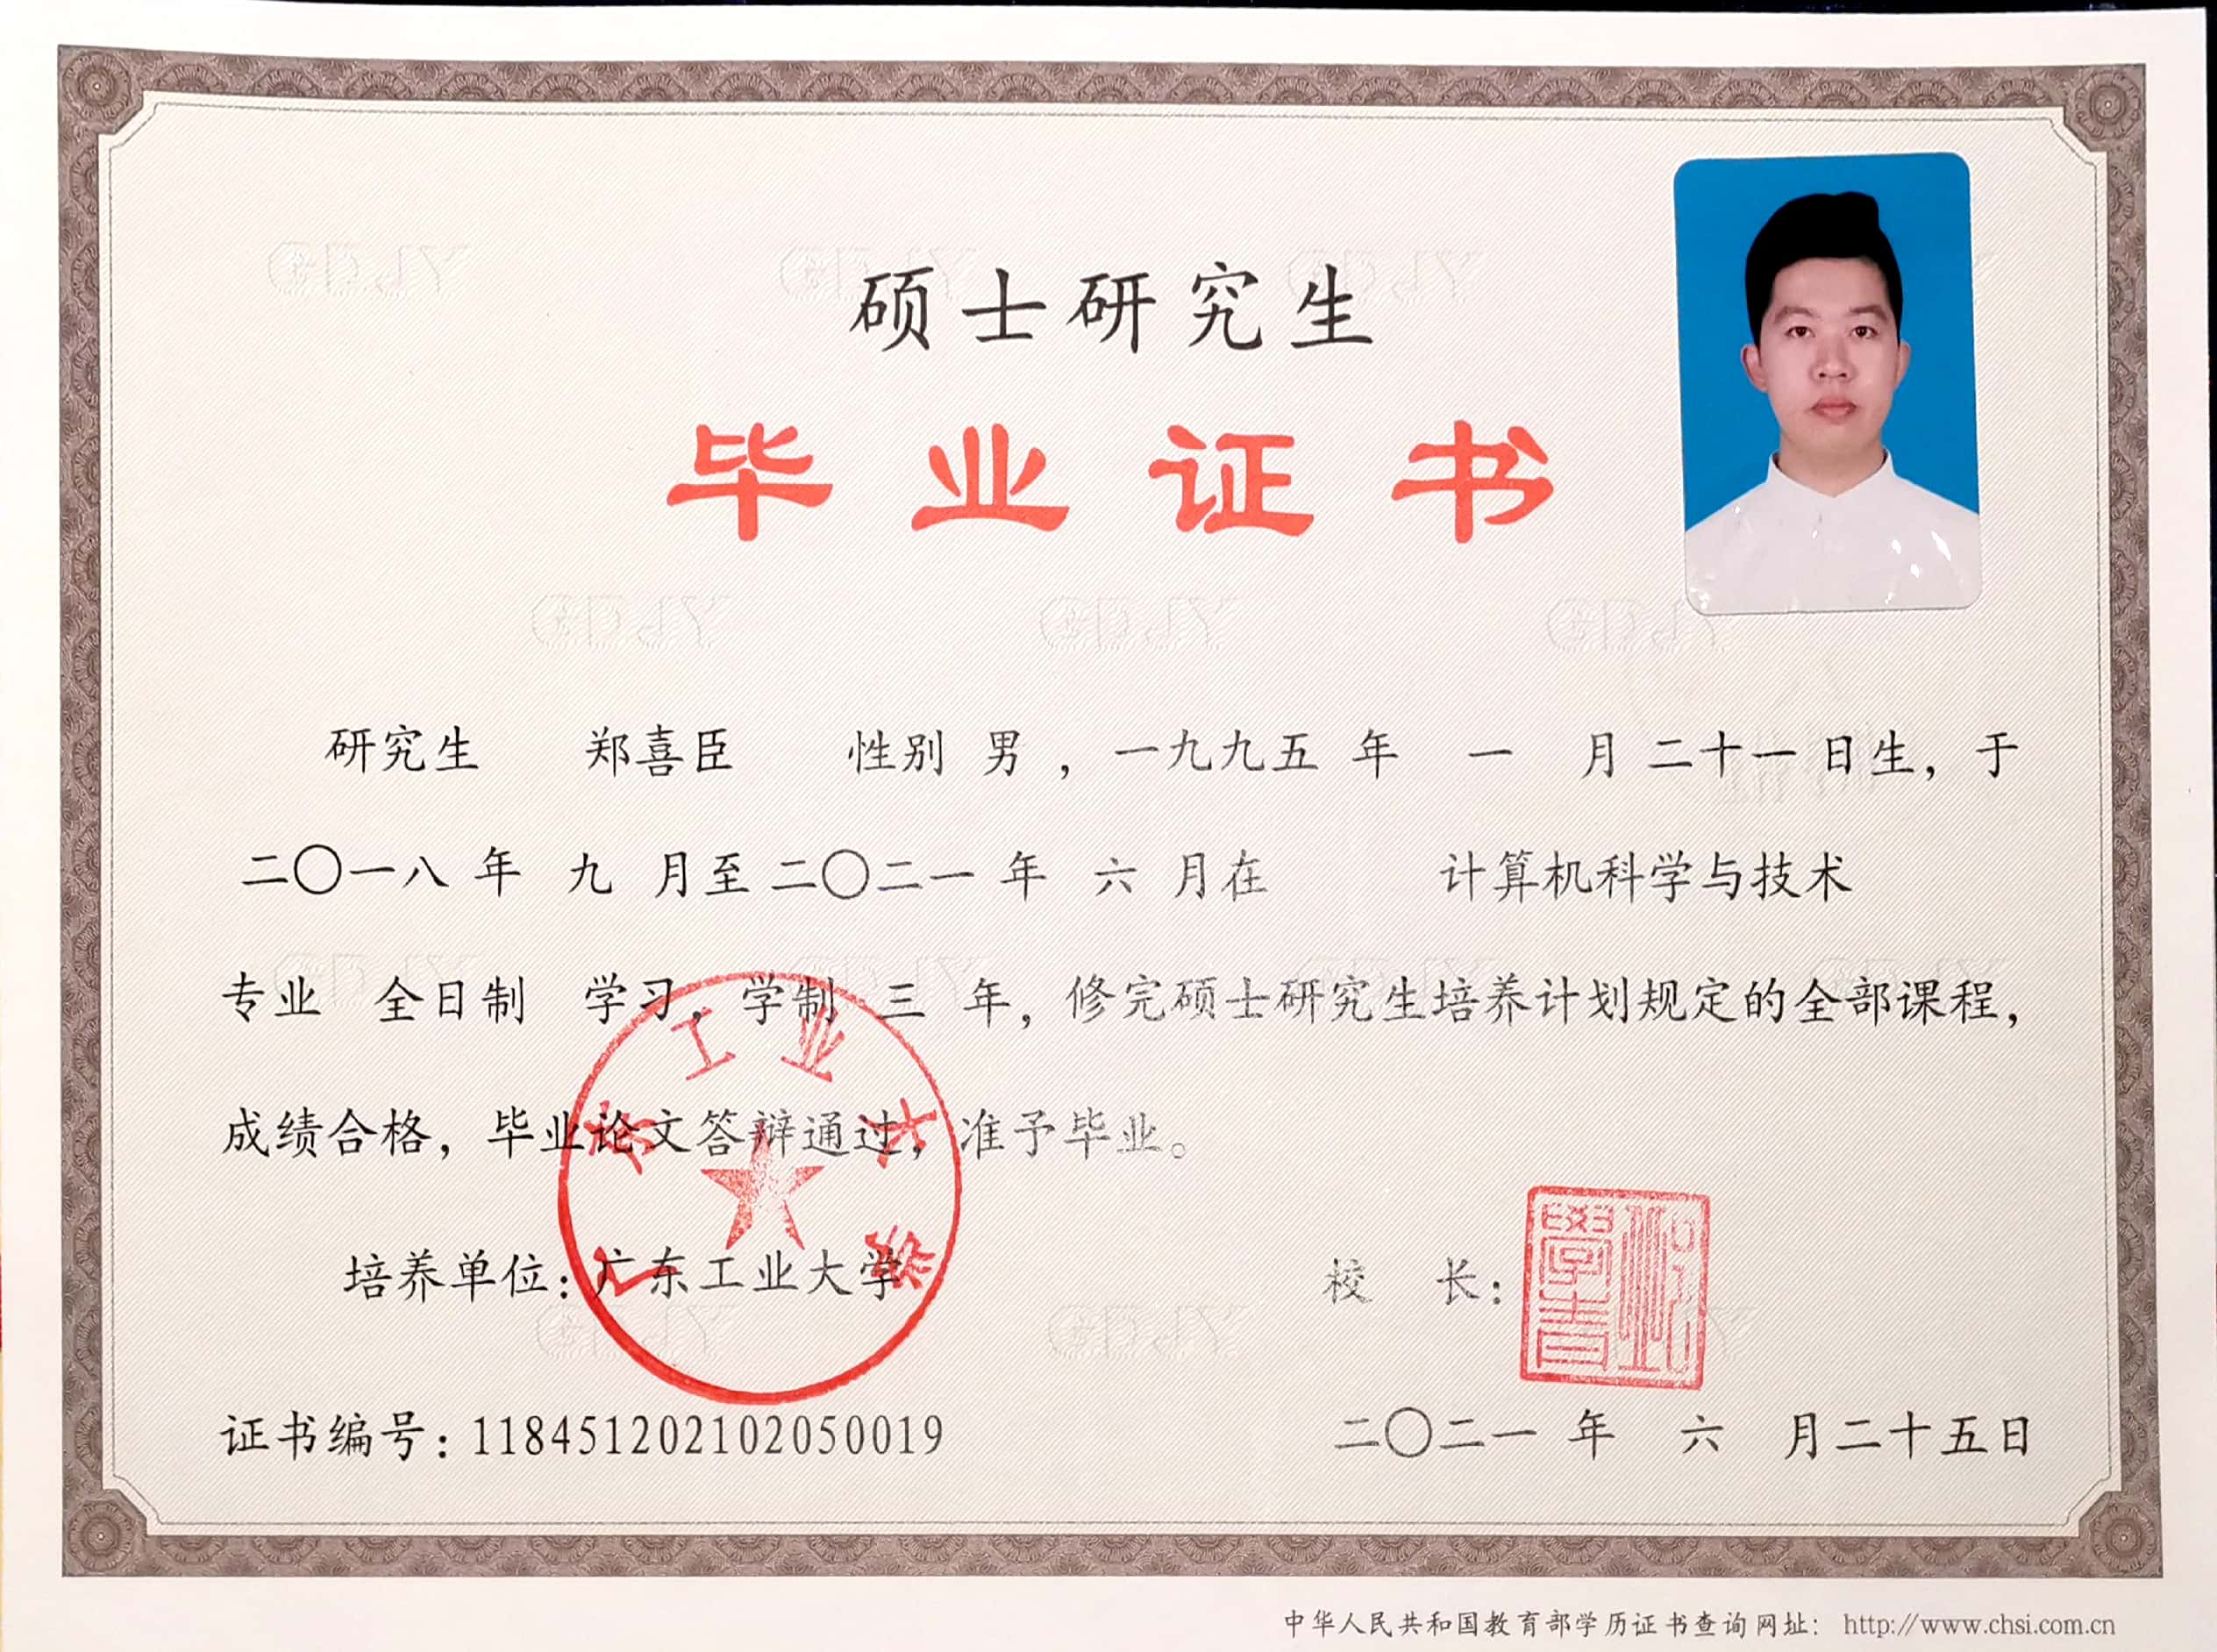 硕士研究生
毕业证书
研究生 郑喜臣 性别 男 ，一九九五 年 一 月 二十一 日生，于
二〇一八 年 九 月至 二〇二一 年 六 月在 计算机科学与技术
专业 全日制 学习，学制 三 年，修完硕士研究生培养计划规定的全部课程，
成绩合格，毕业论文答辩通过，准予毕业。
广东工业大学
培养单位：广东工业大学
校 长：
证书编号：118451202102050019
二〇二一 年 六 月二十五日
中华人民共和国教育部学历证书查询网址： http://www.chsi.com.cn